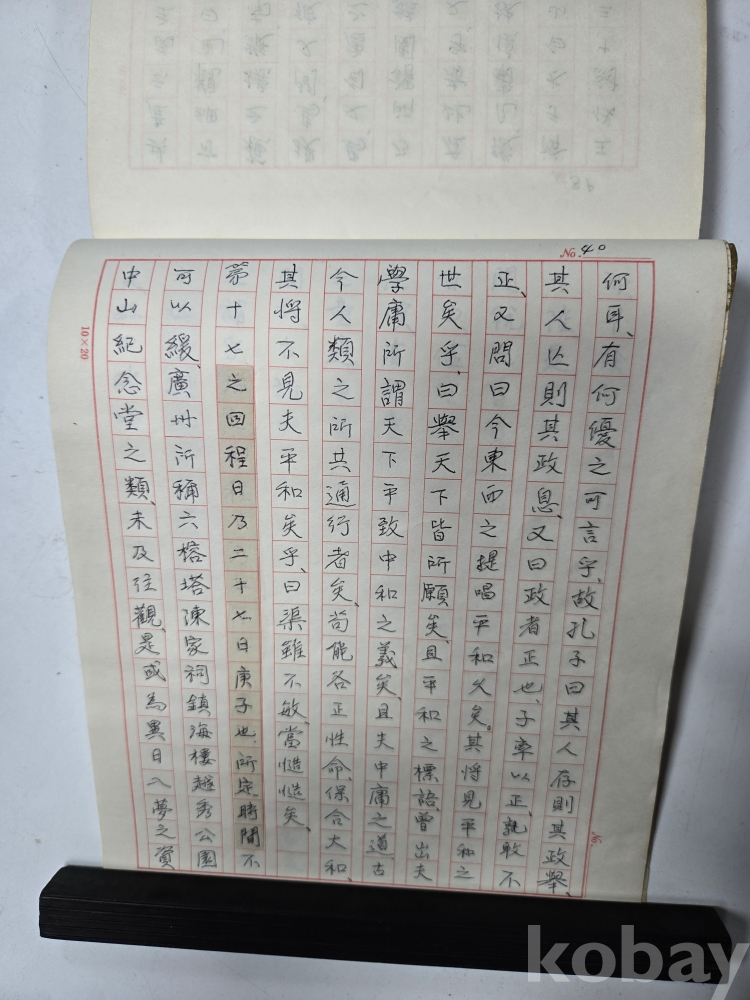 No. 40
何耳、有何優之可言乎、故孔子曰其人存則其政舉、
其人亡則其政息、又曰政者正也、子率以正、孰敢不
正、又問曰今東西之提唱平和久矣。其將見平和之
世矣乎、曰舉天下皆所願矣、且平和之標語、曾出夫
學庸所謂天下平致中和之義矣、且夫中庸之道、古
今人類之所共通行者矣、苟能各正性命、保合大和、
其將不見夫平和矣乎、曰渠雖不敏、當慥慥矣、
第十七之四程日乃二十七日庚子也、所定時間不
可以緩、廣州所稱六榕塔陳家祠鎮海樓越秀公園
中山紀念堂之類、未及往觀、是或為異日入夢之資
10×20
No.
98
kobay